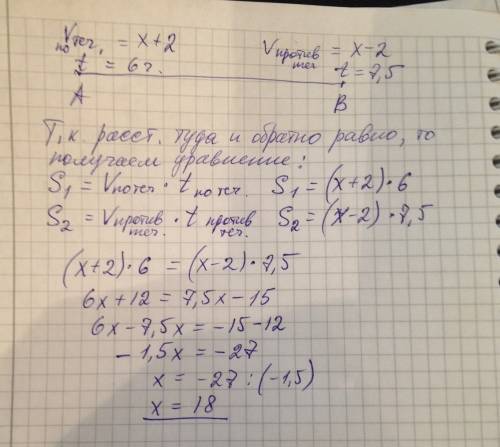 Vпо теч. = x+2 Vпротив теч = x-2
t = 6 ч. t = 7,5
A B
Т.к. расст. туда и обратно равно, то
получаем уравнение:
S₁ = Vпо теч · t по теч. S₁ = (x+2) · 6
S₂ = Vпротив теч. · t против теч. S₂ = (x-2) · 7,5
(x+2) · 6 = (x-2) · 7,5
6x + 12 = 7,5x - 15
6x - 7,5x = -15 - 12
- 1,5x = -27
x = -27 : (-1,5)
x = 18